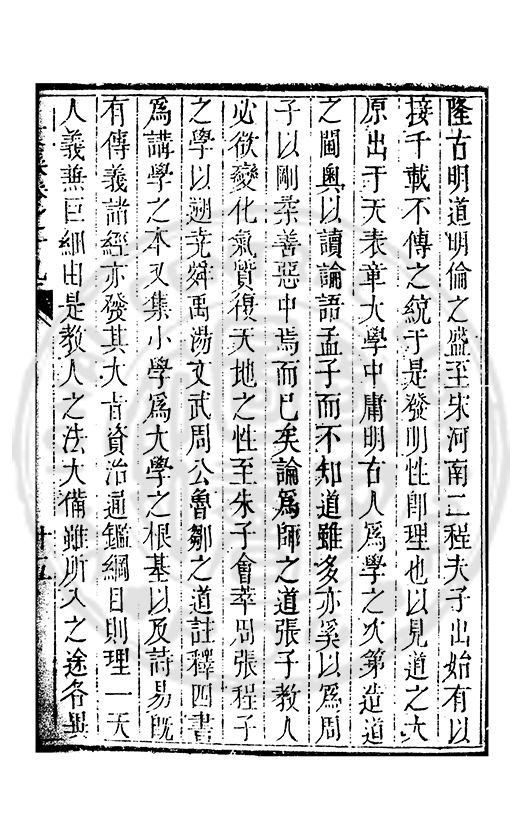 隆古明道明倫之盛至宋河南二程夫子出始有以
接千載不傳之統于是發明性卽理也以見道之大
原出于天表章大學中庸明古人爲學之次第造道
之閫奥以讀論語孟子而不知道雖多亦奚以爲周
子以剛柔善惡中焉而已矣論爲師之道張子教人
必欲變化氣質復天地之性至朱子會萃周張程子
之學以遡堯舜禹湯文武周公魯鄒之道註釋四書
爲講學之本又集小學爲大學之根基以及詩易旣
有傳義諸經亦發其大旨資治通鑑綱目則理一天
人義無巨細由是教人之法大備雖所入之途各異
卷之十九
十五